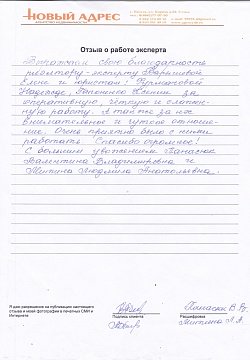 НОВЫЙ АДРЕС
АГЕНТСТВО НЕДВИЖИМОСТИ
Отзыв о работе эксперта
Выражаем свою благодарность
риэлтору-эксперту
Елене и юристам:
Надежде, Ксении за
оперативную, чёткую и слажен-
ную работу. А также за их
внимательное и чуткое отноше-
ние. Очень приятно было с ними
работать. Спасибо огромное!
С большим уважением Панасюк
Валентина Владимировна и
Митина Людмила Анатольевна.
Я даю разрешение на публикацию настоящего
отзыва и моей фотографии в печатных СМИ и
Интернете
Подпись клиента
Расшифровка
Панасюк В.В.
Митина Л.А.